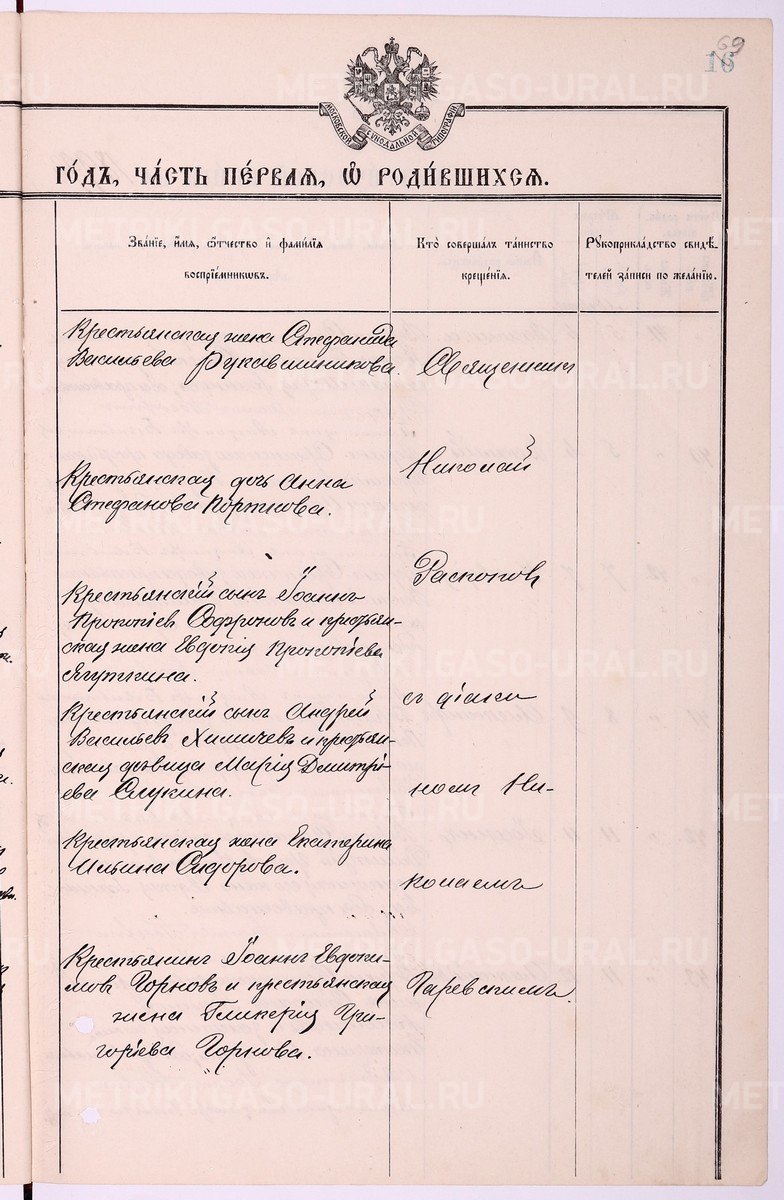 69
16
МОСКОВСКОЙ СѴНОДАЛЬНОЙ ТИПОГРАФІИ
ГО́ДЪ, ЧА́СТЬ ПЕ́РВАЯ, Ѽ РОДИ́ВШИХСЯ.
Зва́нїе, и́мя, ѻ҆́тчество и҆ фами́лїя
воспрїе́мникѡвъ.
Кто̀ соверша́лъ та́инство
креще́нїя.
Рꙋкоприкла́дство свидѣ́-
телей за́писи по жела́нїю.
Крестьянская жена Стефанида
Васильева Рукавишникова.
Крестьянская дочь Анна
Стефанова Портнова.
Крестьянскій сынъ Іоаннъ
Прокопіевъ Софроновъ и крестьян-
ская жена Евдокія Прокопіева
Ягуткина.
Крестьянскій сынъ Андрей
Васильевъ Химичевъ и крестьян-
ская дѣвица Марія Димитрі-
ева Слукина.
Крестьянская жена Екатерина
Ильина Сидорова.
Крестьянинъ Іоаннъ Евдоки-
мовъ Горновъ и крестьянская
жена Гликерія Гри-
горіева Горнова.
Священникъ
Николай
Распоповъ
съ діако
номъ Ни-
колаемъ
Гаревскимъ.
METRIKI.GASO-URAL.RU